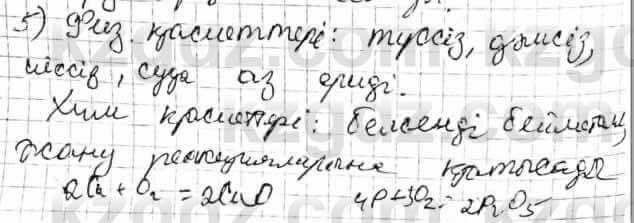 5) Физ. қасиеттері: түссіз, дәмсіз,
иіссіз, суда аз ериді.
Хим қасиеттері: белсенді бейметалл,
жану реакцияларына қатысады
2Cu + O₂ = 2CuO 4P+5O₂ = 2P₂O₅